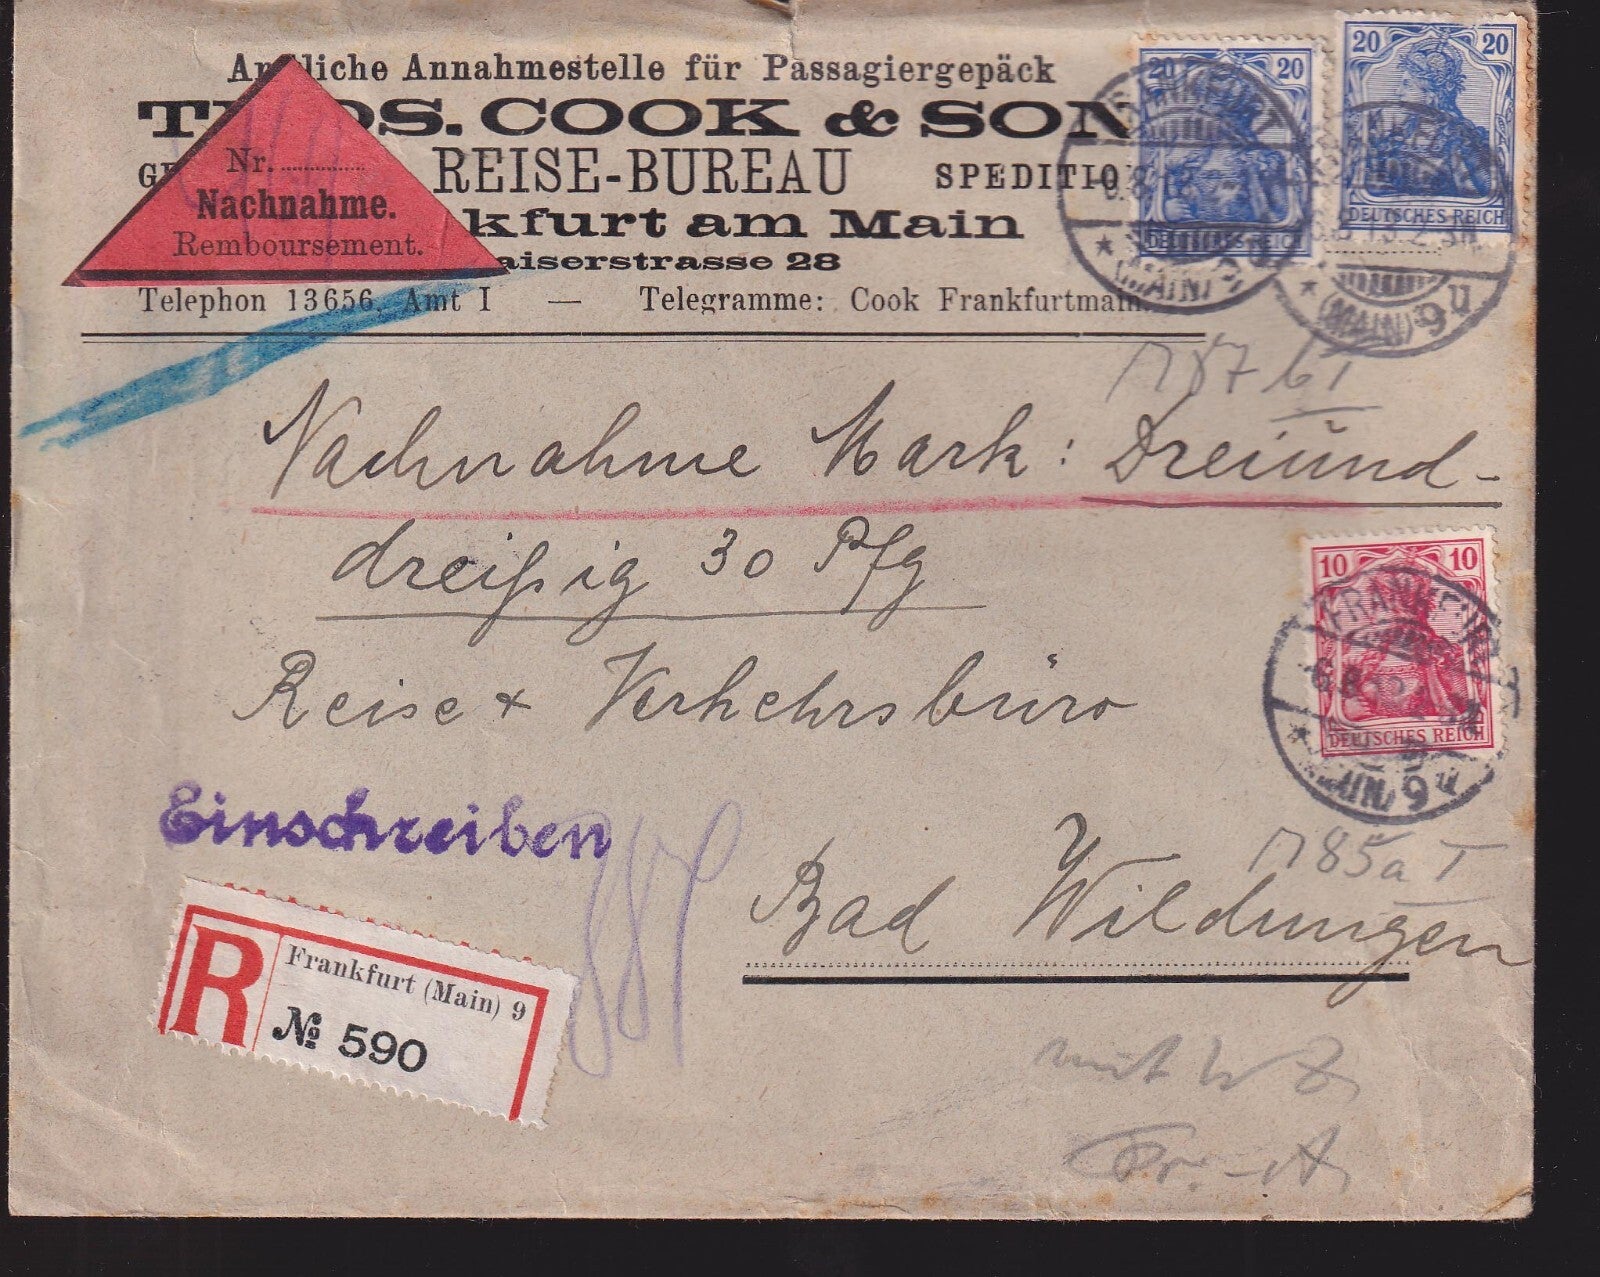 Amtliche Annahmestelle für Passagiergepäck
THOS. COOK & SON
REISE-BUREAU
SPEDITIO
kfurt am Main
aiserstrasse 28
Telephon 13656, Amt I — Telegramme: Cook Frankfurtmain
Nr. ............
Nachnahme.
Remboursement.
20 20
DEUTSCHES REICH
20 20
DEUTSCHES REICH
FRANKFURT
(MAIN)
FRANKFURT
(MAIN) 9 u
Nachnahme Mark: Dreiund-
dreißig 30 Pfg
10 10
DEUTSCHES REICH
FRANKFURT
(MAIN) 9 u
Reise & Verkehrsbüro
Einschreiben
M 85a I
Bad Wildungen
R
Frankfurt (Main) 9
№ 590